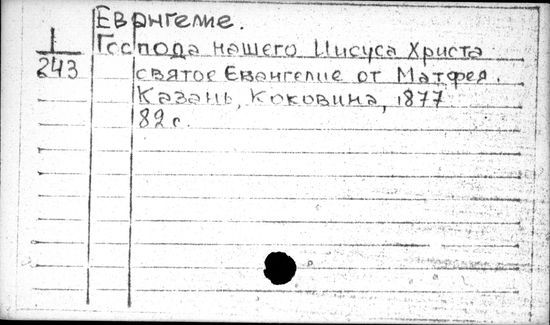 Евангелие.
I
243
Господа нашего Иисуса Христа
святое Евангелие от Матфея.
Казань, Коковина, 1877
82 с.